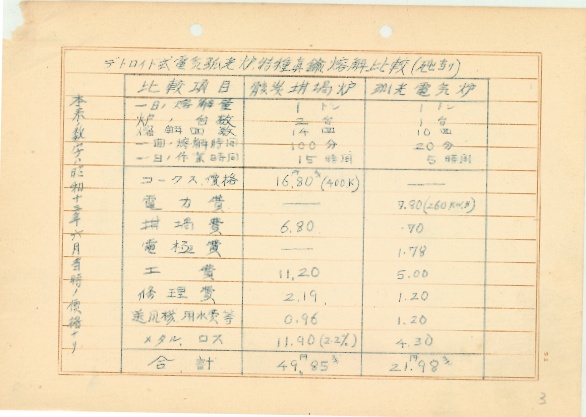 デトロイト式電気弧光炉特種真鍮熔解比較(砲型)
比較項目 骸炭坩堝炉 弧光電気炉
一日ノ熔解量 1トン 1トン
炉ノ台数 2台 1台
熔解回数 14回 10回
一回ノ熔解時間 100分 20分
一日ノ作業時間 15時間 5時間
コークス価格 16.80(400K) ―
電力費 ― 7.80(260KWH)
坩堝費 6.80 .70
電極費 ― 1.78
工費 11.20 5.00
修理費 2.19 1.20
送風機用水費等 0.96 1.20
メタルロス 11.90(2.2%) 4.30
合計 49円85 21円98
本表ノ数字ハ昭和十三年六月当時ノ価格ナリ
3